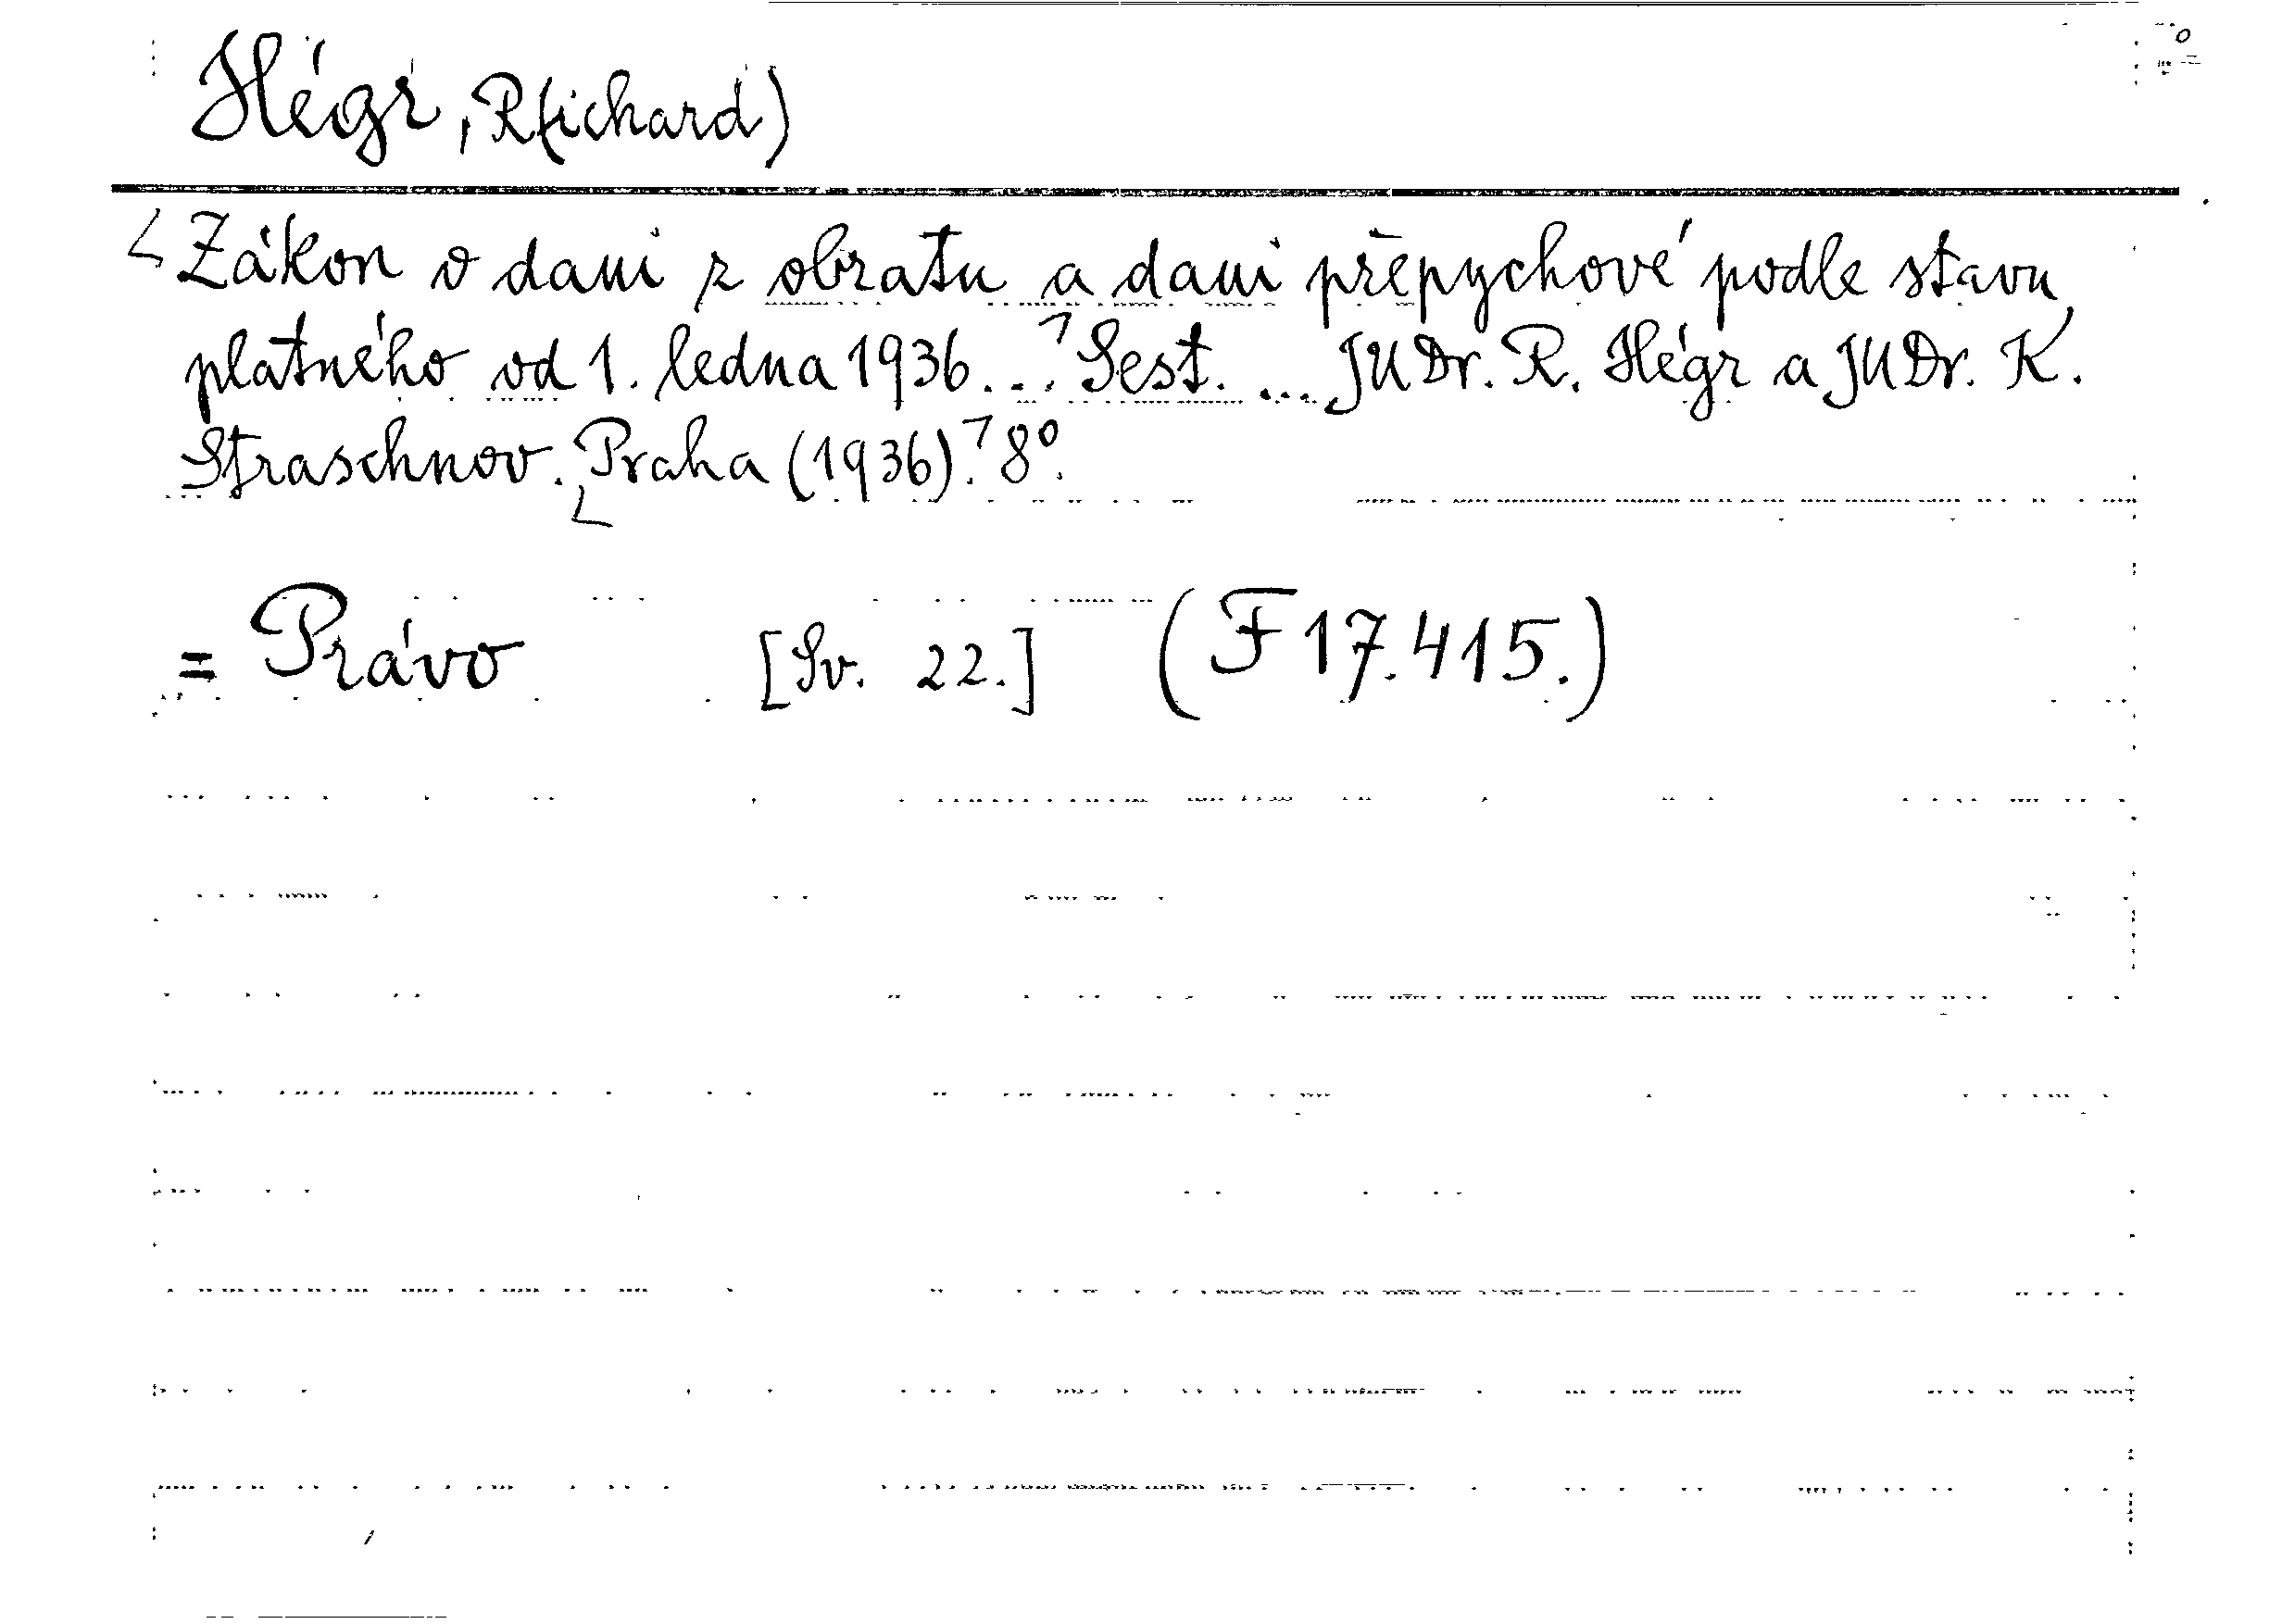 Hégr, R(ichard)
Zákon o dani z obratu a dani přepychové podle stavu
platného od 1. ledna 1936... Sest. ... JUDr. R. Hégr a JUDr. K.
Straschnov. Praha (1936). 8°.
= Právo [Sv. 22.] (F 17.415.)